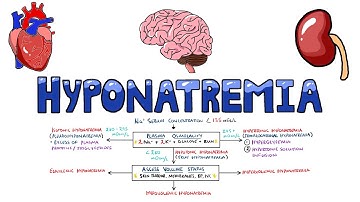 HYPONATREMIA
Na⁺ SERUM CONCENTRATION < 135 mEq/L
ISOTONIC HYPONATREMIA
(PSEUDOHYPONATREMIA)
• EXCESS OF PLASMA
PROTEINS / TRIGLYCERIDES
280 - 295
mOsm/L
PLASMA OSMOLALITY
295+
mOsm/L
HYPERTONIC HYPONATREMIA
① HYPERGLYCEMIA
② HYPERTONIC SOLUTION
INFUSION
< 280
mOsm/L
HYPOTONIC HYPONATREMIA
(TRUE HYPONATREMIA)
ASSESS VOLUME STATUS
SKIN TURGOR, MEMBRANES, BP,
EUVOLEMIC HYPONATREMIA
HYPOVOLEMIC HYPONATREMIA